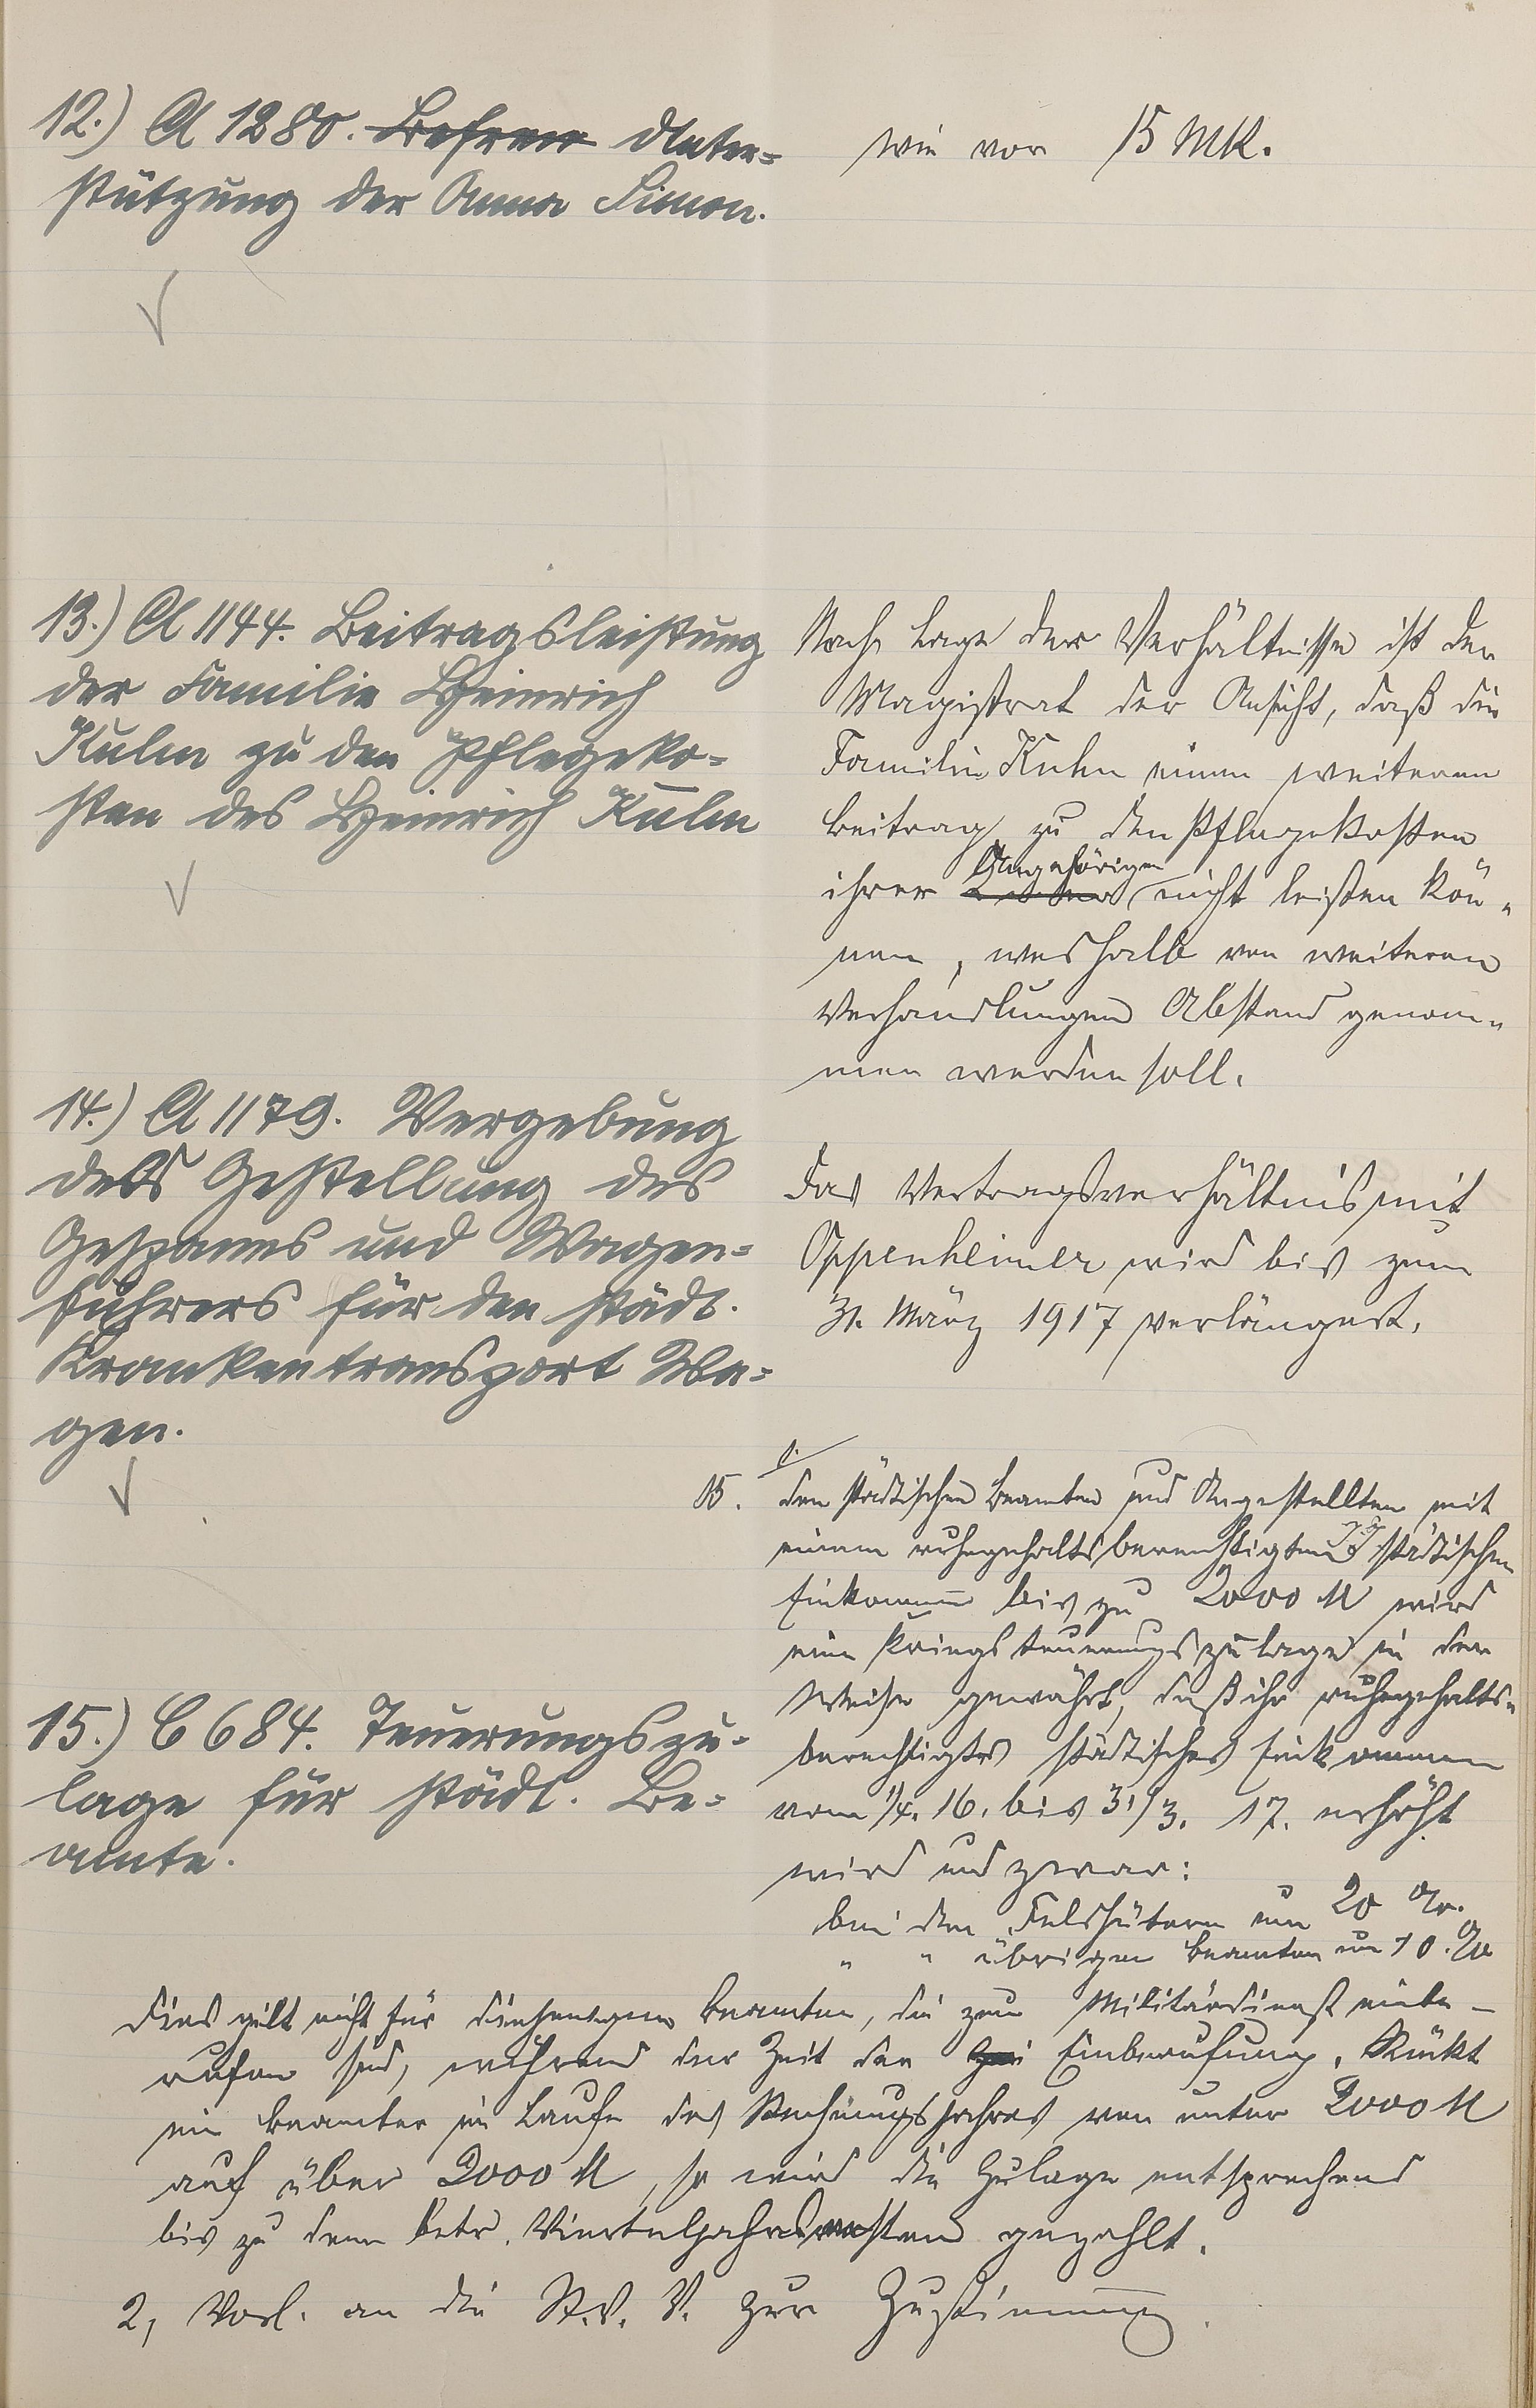 12.) A 1280. Unter-
stützung der Anna Simon.
wie vor 15 Mk.
13.) A 1144. Beitragsleistung
der Familie Heinrich
Kuhn zu den Pflegeko-
sten des Heinrich Kuhn
Nach Lage der Verhältnisse ist der
Magistrat der Ansicht, daß die
Familie Kuhn einen weiteren
Beitrag zu den Pflegekosten
ihrer Angehörigen nicht leisten kön-
nen, weshalb von weiteren
Verhandlungen Abstand genom-
men werden soll.
14.) A 1179. Vergebung
der Gestellung des
Gespanns und Wagen-
führers für den städt.
Krankentransport Wa-
gen.
Das Vertragsverhältnis mit
Oppenheimer wird bis zum
31. März 1917 verlängert.
15.) C 684. Teuerungszu-
lage für städt. Be-
amte.
15. 1.
Den städtischen Beamten und Angestellten mit
einem ruhegehaltsberechtigten städtischen
Einkommen bis zu 2000 M wird
eine Kriegsteuerungszulage in der
Weise gewährt, daß ihr ruhegehalts-
berechtigtes städtisches Einkommen
vom 1/4. 16. bis 31/3. 17. erhöht
wird und zwar:
bei den Feldhütern um 20 %.
" " übrigen Beamten um 10 %
Dies gilt nicht für diejenigen Beamten, die zum Militärdienst einbe-
rufen sind, während der Zeit der Einberufung. Rückt
ein Beamter im Laufe des Rechnungsjahres von unter 2000 M
auf über 2000 M, so wird die Zulage entsprechend
bis zu dem betr. gezahlt.
2, Vorl. an die St. V. V. zur Zustimmung.